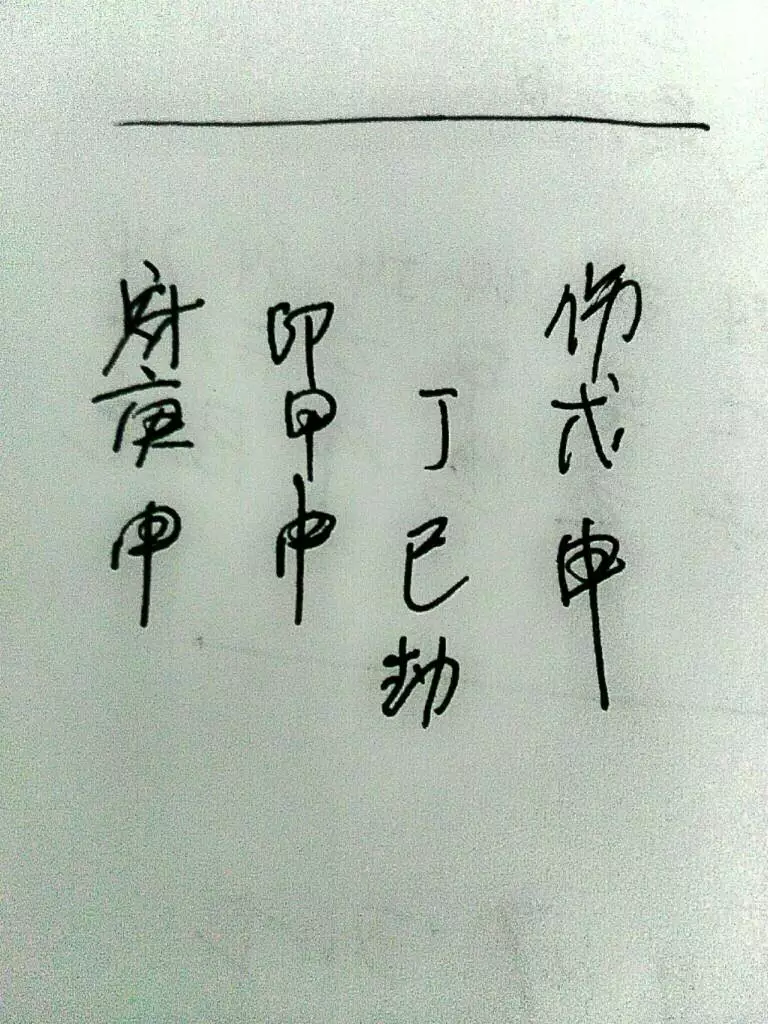 财 印 伤
庚 甲 丁 戊
申 申 巳 申
劫